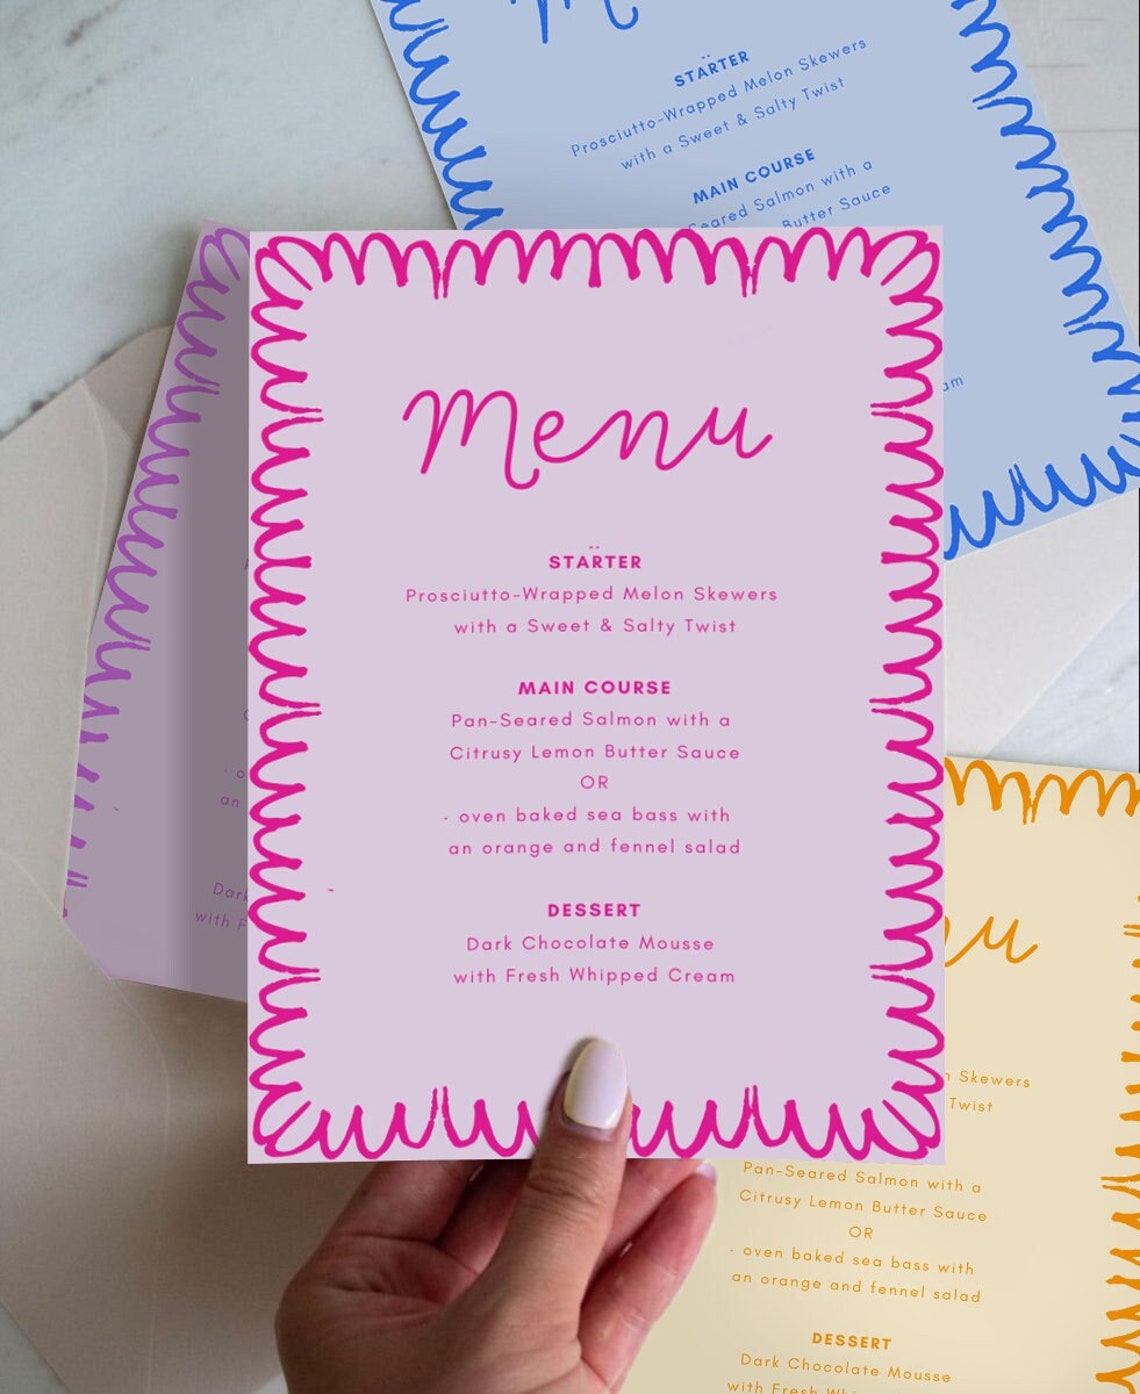 STARTER
Prosciutto-Wrapped Melon Skewers
with a Sweet & Salty Twist
MAIN COURSE
Seared Salmon with a
Butter Sauce
Menu
STARTER
Prosciutto-Wrapped Melon Skewers
with a Sweet & Salty Twist
MAIN COURSE
Pan-Seared Salmon with a
Citrusy Lemon Butter Sauce
OR
- oven baked sea bass with
an orange and fennel salad
DESSERT
Dark Chocolate Mousse
with Fresh Whipped Cream
an
Dark
with F
Skewers
Twist
Pan-Seared Salmon with a
Citrusy Lemon Butter Sauce
OR
- oven baked sea bass with
an orange and fennel salad
DESSERT
Dark Chocolate Mousse
with Fresh